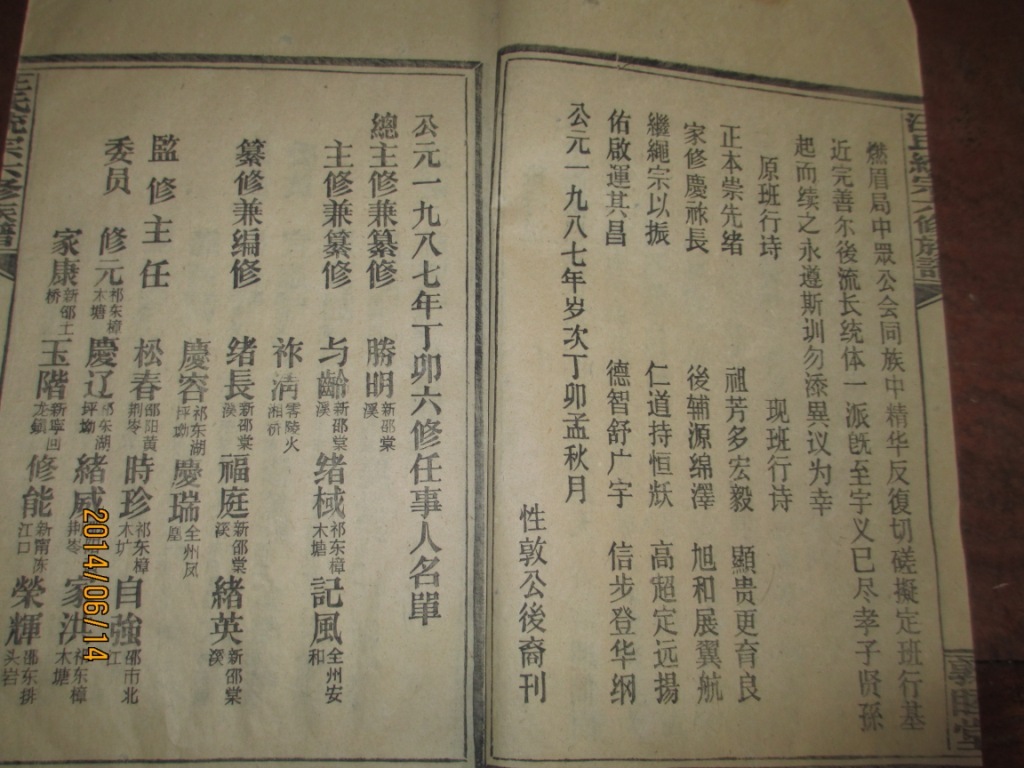 燃眉局中眾公会同族中精华反復切磋擬定班行基
近完善尔後流长统体一派旣至宇义已尽孝子贤孫
起而续之永遵斯训勿漆異议为幸
原班行诗 现班行诗
正本崇先绪 祖芳多宏毅 顯贵更育良
家修慶祢長 後辅源绵澤 旭和展翼航
繼繩宗以振 仁道持恒猷 高超定远揚
佑啟運其昌 德智舒广宇 信步登华纲
公元一九八七年岁次丁卯孟秋月
性敦公後裔刊
公元一九八七年丁卯六修任事人名單
總主修兼纂修 勝明 新邵棠溪
主修兼纂修 与齡 新邵棠溪 绪棫 祁东樟木塘 記风 全州安和
祢清 零陵火湘桥
纂修兼编修 绪長 新邵棠溪 福庭 新邵棠溪 緒英 新邵棠溪
慶容 祁东湖坪坳 慶瑞 全州凤凰
監修主任 松春 邵阳黄荆岑 時珍 祁东樟木圹 自強 邵市北江
委员 修元 祁东樟木塘 慶辽 祁东湖坪坳 緒威 荆岑 家洪 祁东樟木塘
家康 新邵土桥 玉階 新寧回龙镇 修能 新南陈江口 榮輝 邵东排头岩
2014/06/14